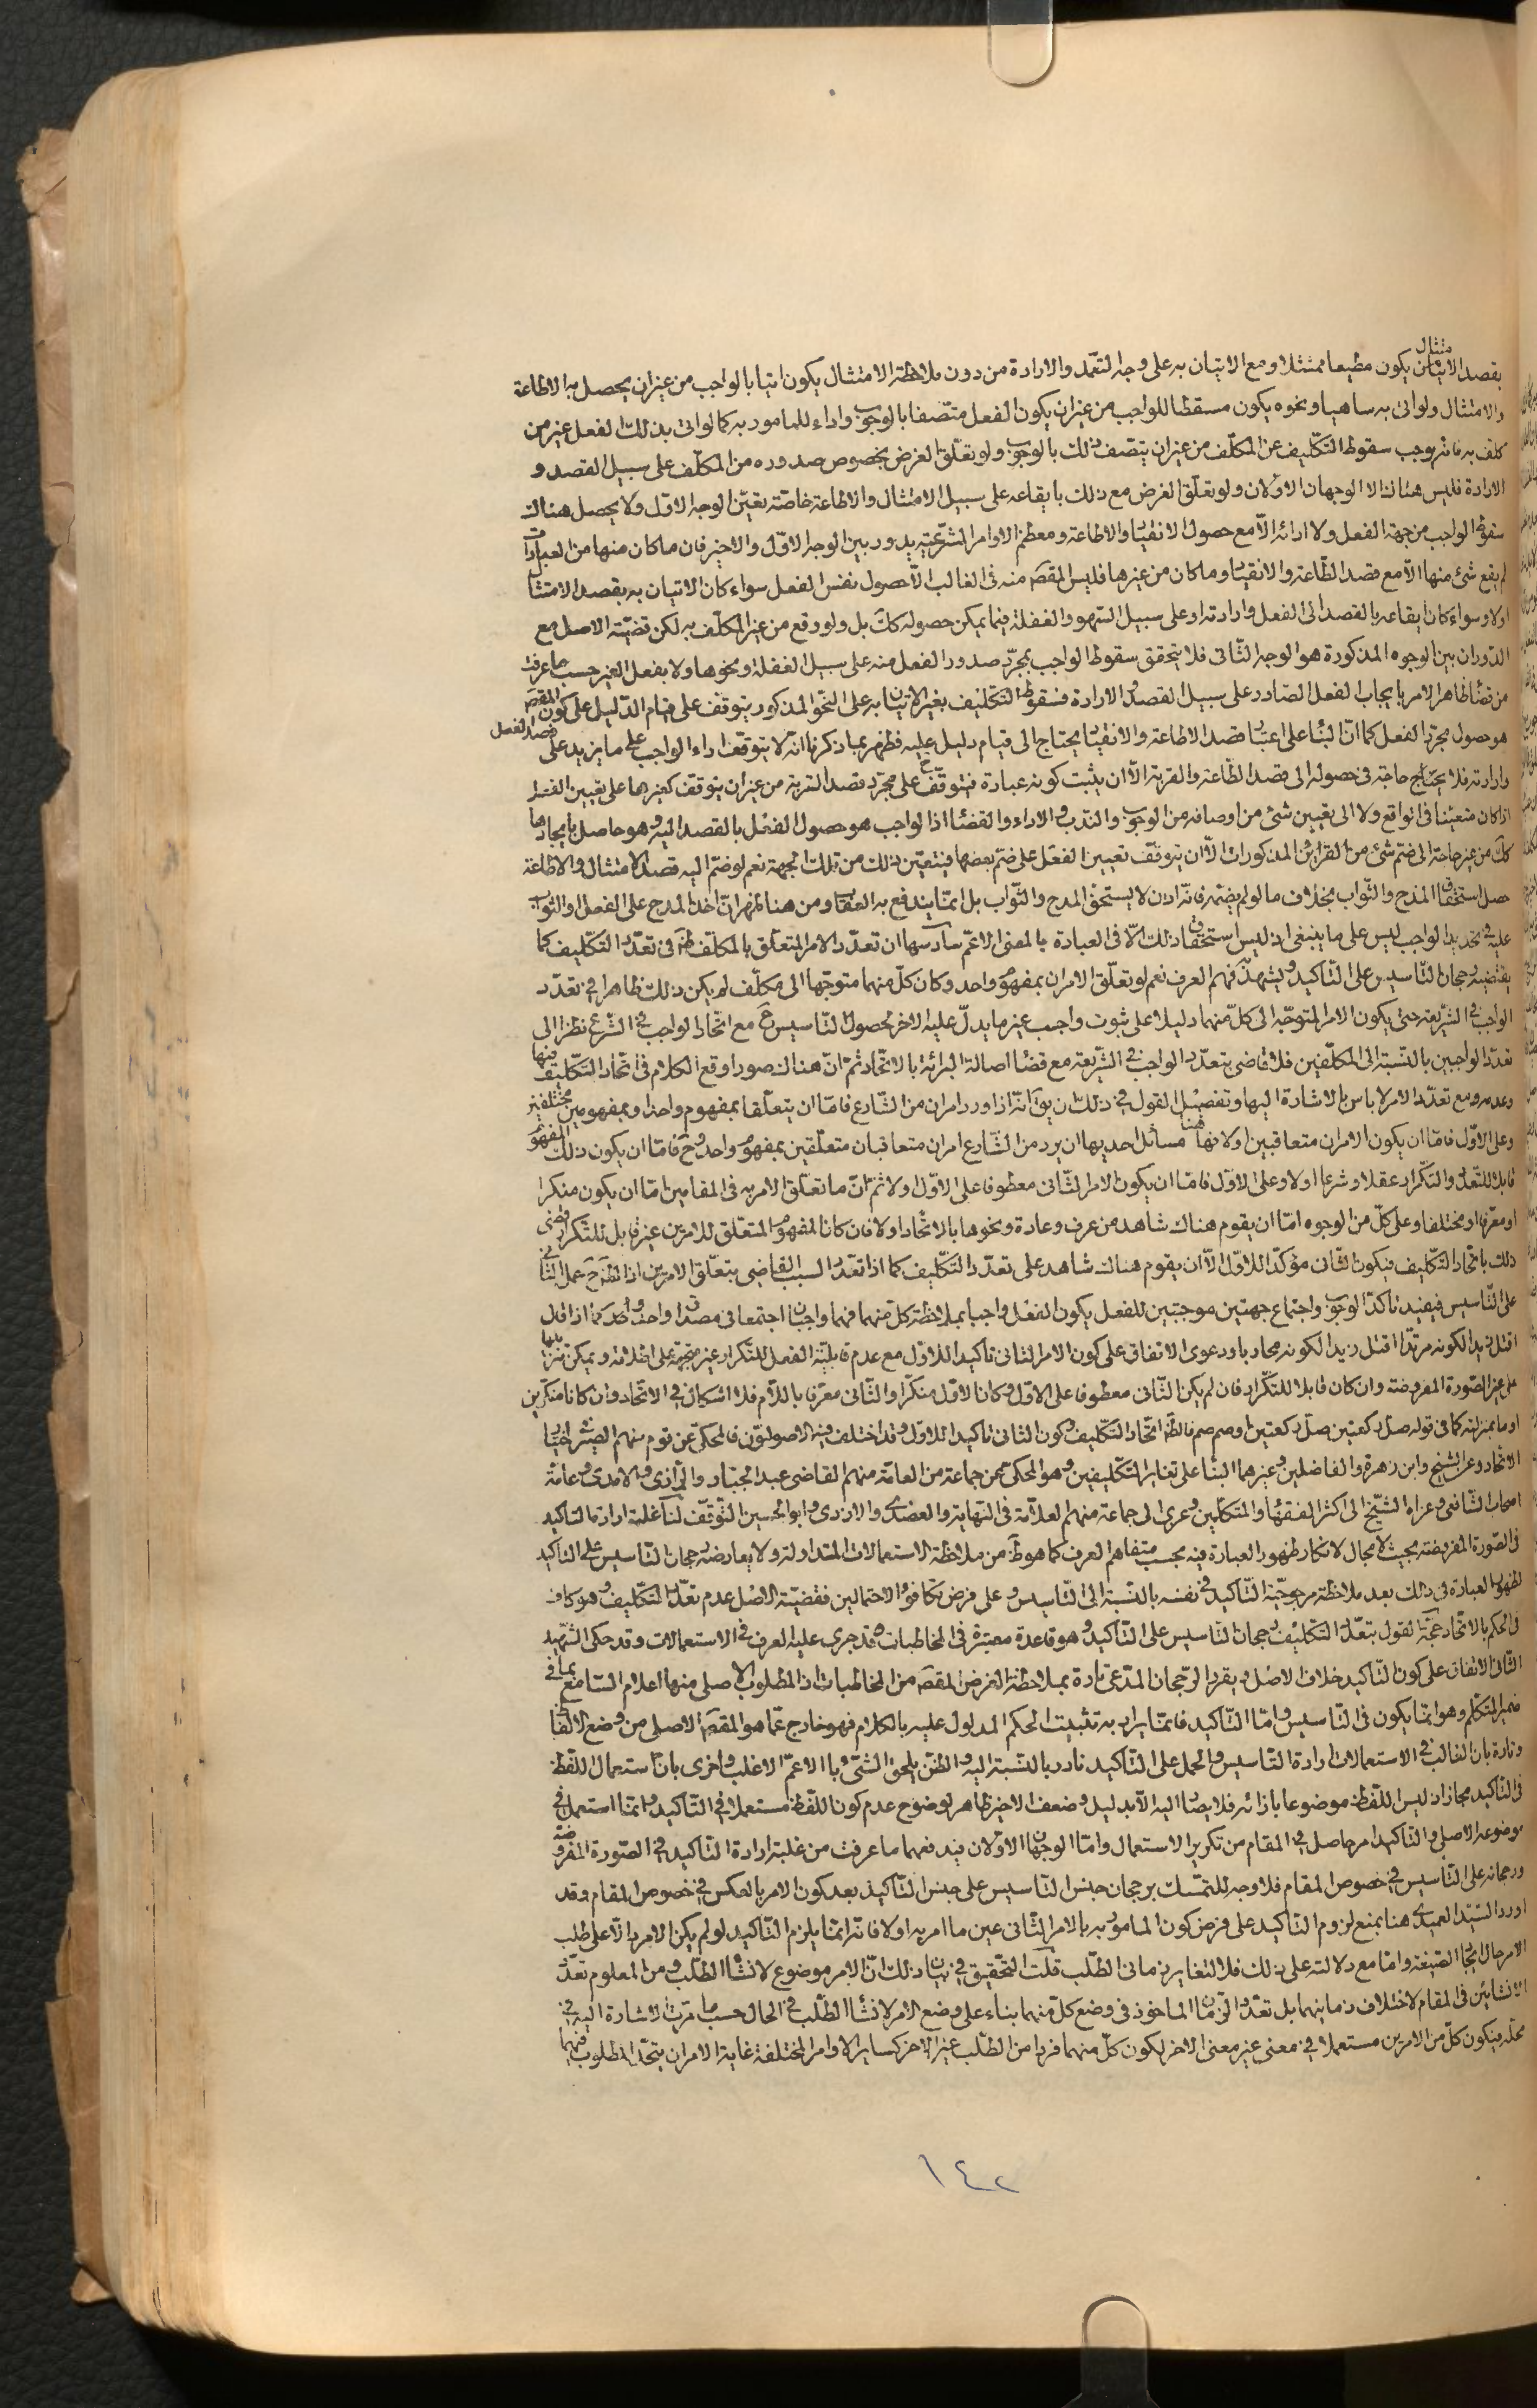 بقصد الامتثال يكون مطيعا ممتثلا ومع الاتيان به على وجه التعمّد والارادة من دون ملاحظة الامتثال يكون اتيا بالواجب من غير ان يحصل به الاطاعة
والامتثال ولو اتى به ساهيا ونحوه يكون مسقطا للواجب من غير ان يكون الفعل متّصفا بالوجوب واداء للمامور به كما لو اتى بذلك الفعل غير من
كلف به فانّه يوجب سقوط التكليف عن المكلّف من غير ان يتصف ذلك بالوجوب ولو تعلّق الغرض بخصوص صدوره من المكلّف على سبيل القصد و
الارادة فليس هناك الا الوجهان الاوّلان ولو تعلّق الغرض مع ذلك بايقاعه على سبيل الامتثال والاطاعة خاصّة تعيّن الوجه الاوّل ولا يحصل هناك
سقوط الواجب من جهة الفعل ولا ادائه الاّ مع حصول الانقياد والاطاعة ومعظم الاوامر الشّرعيّة يدور بين الوجه الاوّل والاخير فان ما كان منها من العبادات
لم يقع شئ منها الاّ مع قصد الطّاعة والانقياد وما كان من غيرها فليس المقصَ منه فى الغالب الاّ حصول نفس الفعل سواء كان الاتيان به بقصد الامتثا
اولا وسواء كان ايقاعه بالقصد الى الفعل وارادته او على سبيل السّهو والغفلة فيما يمكن حصوله ككَ بل ولو وقع من غير المكلّف به لكن قضيّة الاصل مع
الدّوران بين الوجوه المذكورة هو الوجه الثّانى فلا يتحقق سقوط الواجب بمجرّد صدور الفعل منه على سبيل الغفلة ونحوها ولا بفعل الغير حسب ما عرفت
من قضاء ظاهر الامر بايجاب الفعل الصّادر على سبيل القصد والارادة فسقوط التّكليف بغير الاتيان به على النّحو المذكور يتوقف على قيام الدّليل على كون المقصَ
هو حصول مجرّد الفعل كما انّ البناء على اعتبار قصد الاطاعة والانقياد يحتاج الى قيام دليل عليه فظهر بما ذكرنا انّه لا يتوقّف اداء الواجب على ما يزيد على قصد الفعل
وارادته فلا يحتاج حَ فى حصوله الى قصد الطّاعة والقربة الاّ ان يثبت كونه عبادة فيتوقّف على مجرّد قصد القربة من غير ان يتوقف كغيرها على تعيين الفعل
اذا كان متعيّنا فى الواقع ولا الى تعيين شئ من اوصافه من الوجوب والنّدب والاداء والقضاء اذ الواجب هو حصول الفعل بالقصد اليه وهو حاصل بايجادها
ككَ من غير حاجة الى ضمّ شئ من القراين المذكورات الاّ ان يتوقف تعيين الفعل على ضمّ بعضها فيتعيّن ذلك من تلك الجهة نعم لو ضمّ اليه قصد الامتثال والاطاعة
حصل استحقاق المدح والثّواب بخلاف ما لو لم يضمّه فانّه اذن لا يستحقّ المدح والثّواب بل انمّا يندفع به العقاب ومن هنا ظهر انّ اخذ المدح على الفعل او الثواب
عليه فى تحديد الواجب ليس على ما ينبغى اذ ليس استحقاق ذلك الاّ فى العبادة بالمعنى الاعمّ سادسها ان تعدّد الامر المتعلّق بالمكلّف ظَ فى تعدّد التكليف كما
يقتضيه رجحان التّاسيس على التّاكيد ويشهد به فهم العرف نعم لو تعلّق الامران بمفهوم واحد وكان كلّ منهما متوجّها الى مكلّف لم يكن ذلك ظاهرا فى تعدّد
الواجب فى الشريعة حتى يكون الامر المتوجّه الى كلّ منهما دليلا على ثبوت واجب غير ما يدلّ عليه الاخر لحصول التّاسيس حَ مع اتّحاد الواجب فى الشّرع نظرا الى
تعدّد الواجبين بالنّسبة الى المكلّفين فلا قاضى بتعدّد الواجب فى الشّريعة مع قضاء اصالة البرائة بالاتّحاد ثمّ انّ هناك صورا وقع الكلام فى اتّحاد التّكليف فيها
وعدمه ومع تعدّد الامر لا باس بالاشارة اليها وتفصيل القول فى ذلك ان يقَ انّه اذا ورد امران من الشّارع فامّا ان يتعلّقا بمفهوم واحد او بمفهومين مختلفين
وعلى الاوّل فامّا ان يكون الامران متعاقبين اولا فهنا مسائل احديها ان يرد من الشّارع امران متعاقبان متعلّقين بمفهوم واحد وحَ فامّا ان يكون ذلك المفهوم
قابلا للتّعدّد والتّكرار عقلا او شرعا اولا وعلى الاوّل فامّا ان يكون الامر الثّانى معطوفا على الاوّل اولا ثمّ انّ ما تعلّق الامر به فى المقامين امّا ان يكون منكرا
او معرّفا او مختلفا وعلى كلّ من الوجوه امّا ان يقوم هناك شاهد من عرف وعادة ونحوها بالاتّحاد اولا فان كان المفهوم المتعلّق للامرين غير قابل للتّكرار قضى
ذلك باتّحاد التّكليف فيكون الثّانى مؤكّدا للاوّل الاّ ان يقوم هناك شاهد على تعدّد التّكليف كما اذا تعدّد السبب القاضى بتعلّق الامرين اذ الظَ حَ حمل الثّانى
على التّاسيس فيفيد تاكّد الوجوب واجتماع جهتين موجبتين للفعل يكون الفعل واجبا بملاحظة كلّ منهما فهما واجبان اجتمعا فى مصداق واحد كما اذا قال
اقتل زيدا لكونه مرتدّا اقتل زيدا لكونه محاربا ودعوى الاتفاق على كون الامر الثانى تاكيدا للاوّل مع عدم قابليّة الفعل للتّكرار غير متّجهة على اطلاقه ويمكن تنزيلها
على غير الصّورة المفروضة وان كان قابلا للتكّرار فان لم يكن الثّانى معطوفا على الاوّل وكان الاوّل منكّرا والثّانى معرّفا باللاّم فلا اشكال فى الاتحاد وان كانا منكّرين
او ما بمنزلته كما فى قوله صلّ ركعتين صلّ ركعتين او صم صم فالظَ اتّحاد التكّليف وكون الثانى تاكيدا للاوّل وقد اختلف فيه الاصوليّون فالمحكىّ عن قوم منهم الصّيرفى اختيار
الاتّحاد وعن الشّيخ وابن زهرة والفاضلين وغيرهما البناء على تغاير التّكليفين وهو المحكىّ عن جماعة من العامّة منهم القاضى عبد الجبّار والرّازى والامدى وعامّة
اصحاب الشّافعى وعزاه الشّيخ الى اكثر الفقهاء والمتكلّمين وعزى الى جماعة منهم العلاّمة فى النّهاية والعضدى والازدى وابو الحسين التّوقّف لنا غلبة ارادة التاكيد
فى الصّورة المفروضة بحيث لا مجال لانكار ظهور العبارة فيه بحسب متفاهم العرف كما هو ظَ من ملاحظة الاستعمالات المتداولة ولا يعارضه رجحان التّاسيس على التاكيد
لظهور العبارة فى ذلك بعد ملاحظة مرجوحيّة التّاكيد فى نفسه بالنّسبة الى التّاسيس وعلى فرض تكافؤ الاحتمالين فقضيّة الاصل عدم تعدّد التّكليف وهو كاف
فى الحكم بالاتّحاد حجّة القول بتعدّد التّكليف رجحان التّاسيس على التّاكيد وهو قاعدة معتبرة فى المخاطبات قد جرى عليه العرف فى الاستعمالات وقد حكى الشّهيد
الثّانى الاتفاق على كون التّاكيد خلاف الاصل ويقرّر الرّجحان المدّعى تارة بملاحظة الغرض المقصَ من المخاطبات اذ المطلوب الاصلى منها اعلام السّامع بما فى
ضمير المتكلّم وهو انمّا يكون فى التّاسيس وامّا التّاكيد فانمّا يراد به تثبيت الحكم المدلول عليه بالكلام فهو خارج عمّا هو المقصَ الاصلى من وضع الالفاظ
وتارة بان الغالب فى الاستعمالات ارادة التّاسيس والحمل على التّاكيد نادر بالنّسبة اليه والظّن يلحق الشّئ بالاعمّ الاغلب واخرى بانّ استعمال اللّفظ
فى التّاكيد مجاز اذ ليس اللّفظ موضوعا بازائه فلا يصار اليه الاّ بدليل وضعف الاخير ظاهر لوضوح عدم كون اللّفظ مستعملا فى التّاكيد وانمّا استعمل فى
موضوعه الاصلى والتّاكيد امر حاصل فى المقام من تكرير الاستعمال وامّا الوجهان الاوّلان فيدفعهما ما عرفت من غلبة ارادة التّاكيد فى الصّورة المفروضة
ورجحانه على التّاسيس فى خصوص المقام فلا وجه للتّمسّك برجحان جنس التّاسيس على جنس التّاكيد بعد كون الامر بالعكس فى خصوص المقام وقد
اورد السّيّد العميدى هنا بمنع لزوم التّاكيد على فرض كون المامور به بالامر الثّانى عين ما امر به اولا فانّه انمّا يلزم التّاكيد لو لم يكن الامر دالاّ على طلب
الامر حال ايجاد الصّيغة وامّا مع دلالته على ذلك فلا لتغاير زمانى الطّلب قلت التّحقيق فى بيان ذلك انّ الامر موضوع لانشاء الطّلب ومن المعلوم تعدّد
الانشائين فى المقام لاختلاف زمانيهما بل تعدّد الزّمان الماخوذ فى وضع كلّ منهما بناء على وضع الامر لانشاء الطّلب فى الحال حسب ما مرّت الاشارة اليه فى
محلّه فيكون كلّ من الامرين مستعملا فى معنى غير معنى الاخر لكون كلّ منهما فردا من الطّلب غير الاخر كساير الاوامر المختلفة غاية الامر ان يتحّد المطلوب فيهما
١٤٢